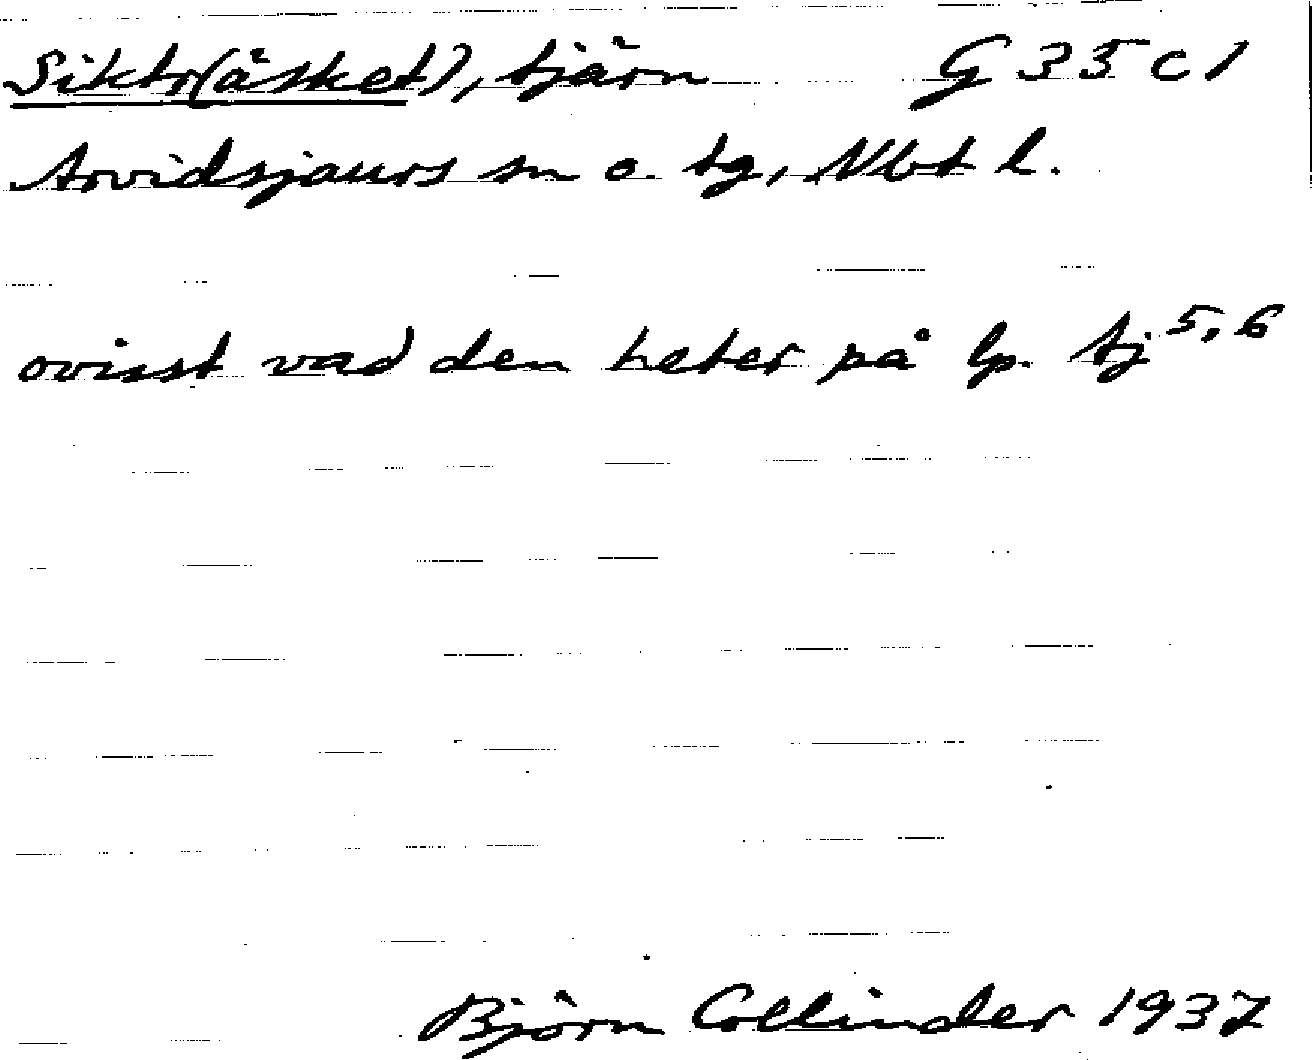 Siktr(äsket), tjärn G 35 c 1
Arvidsjaurs sn o. tg, Nbt l.
ovisst vad den heter på lp. tj 5,6
Björn Collinder 1937